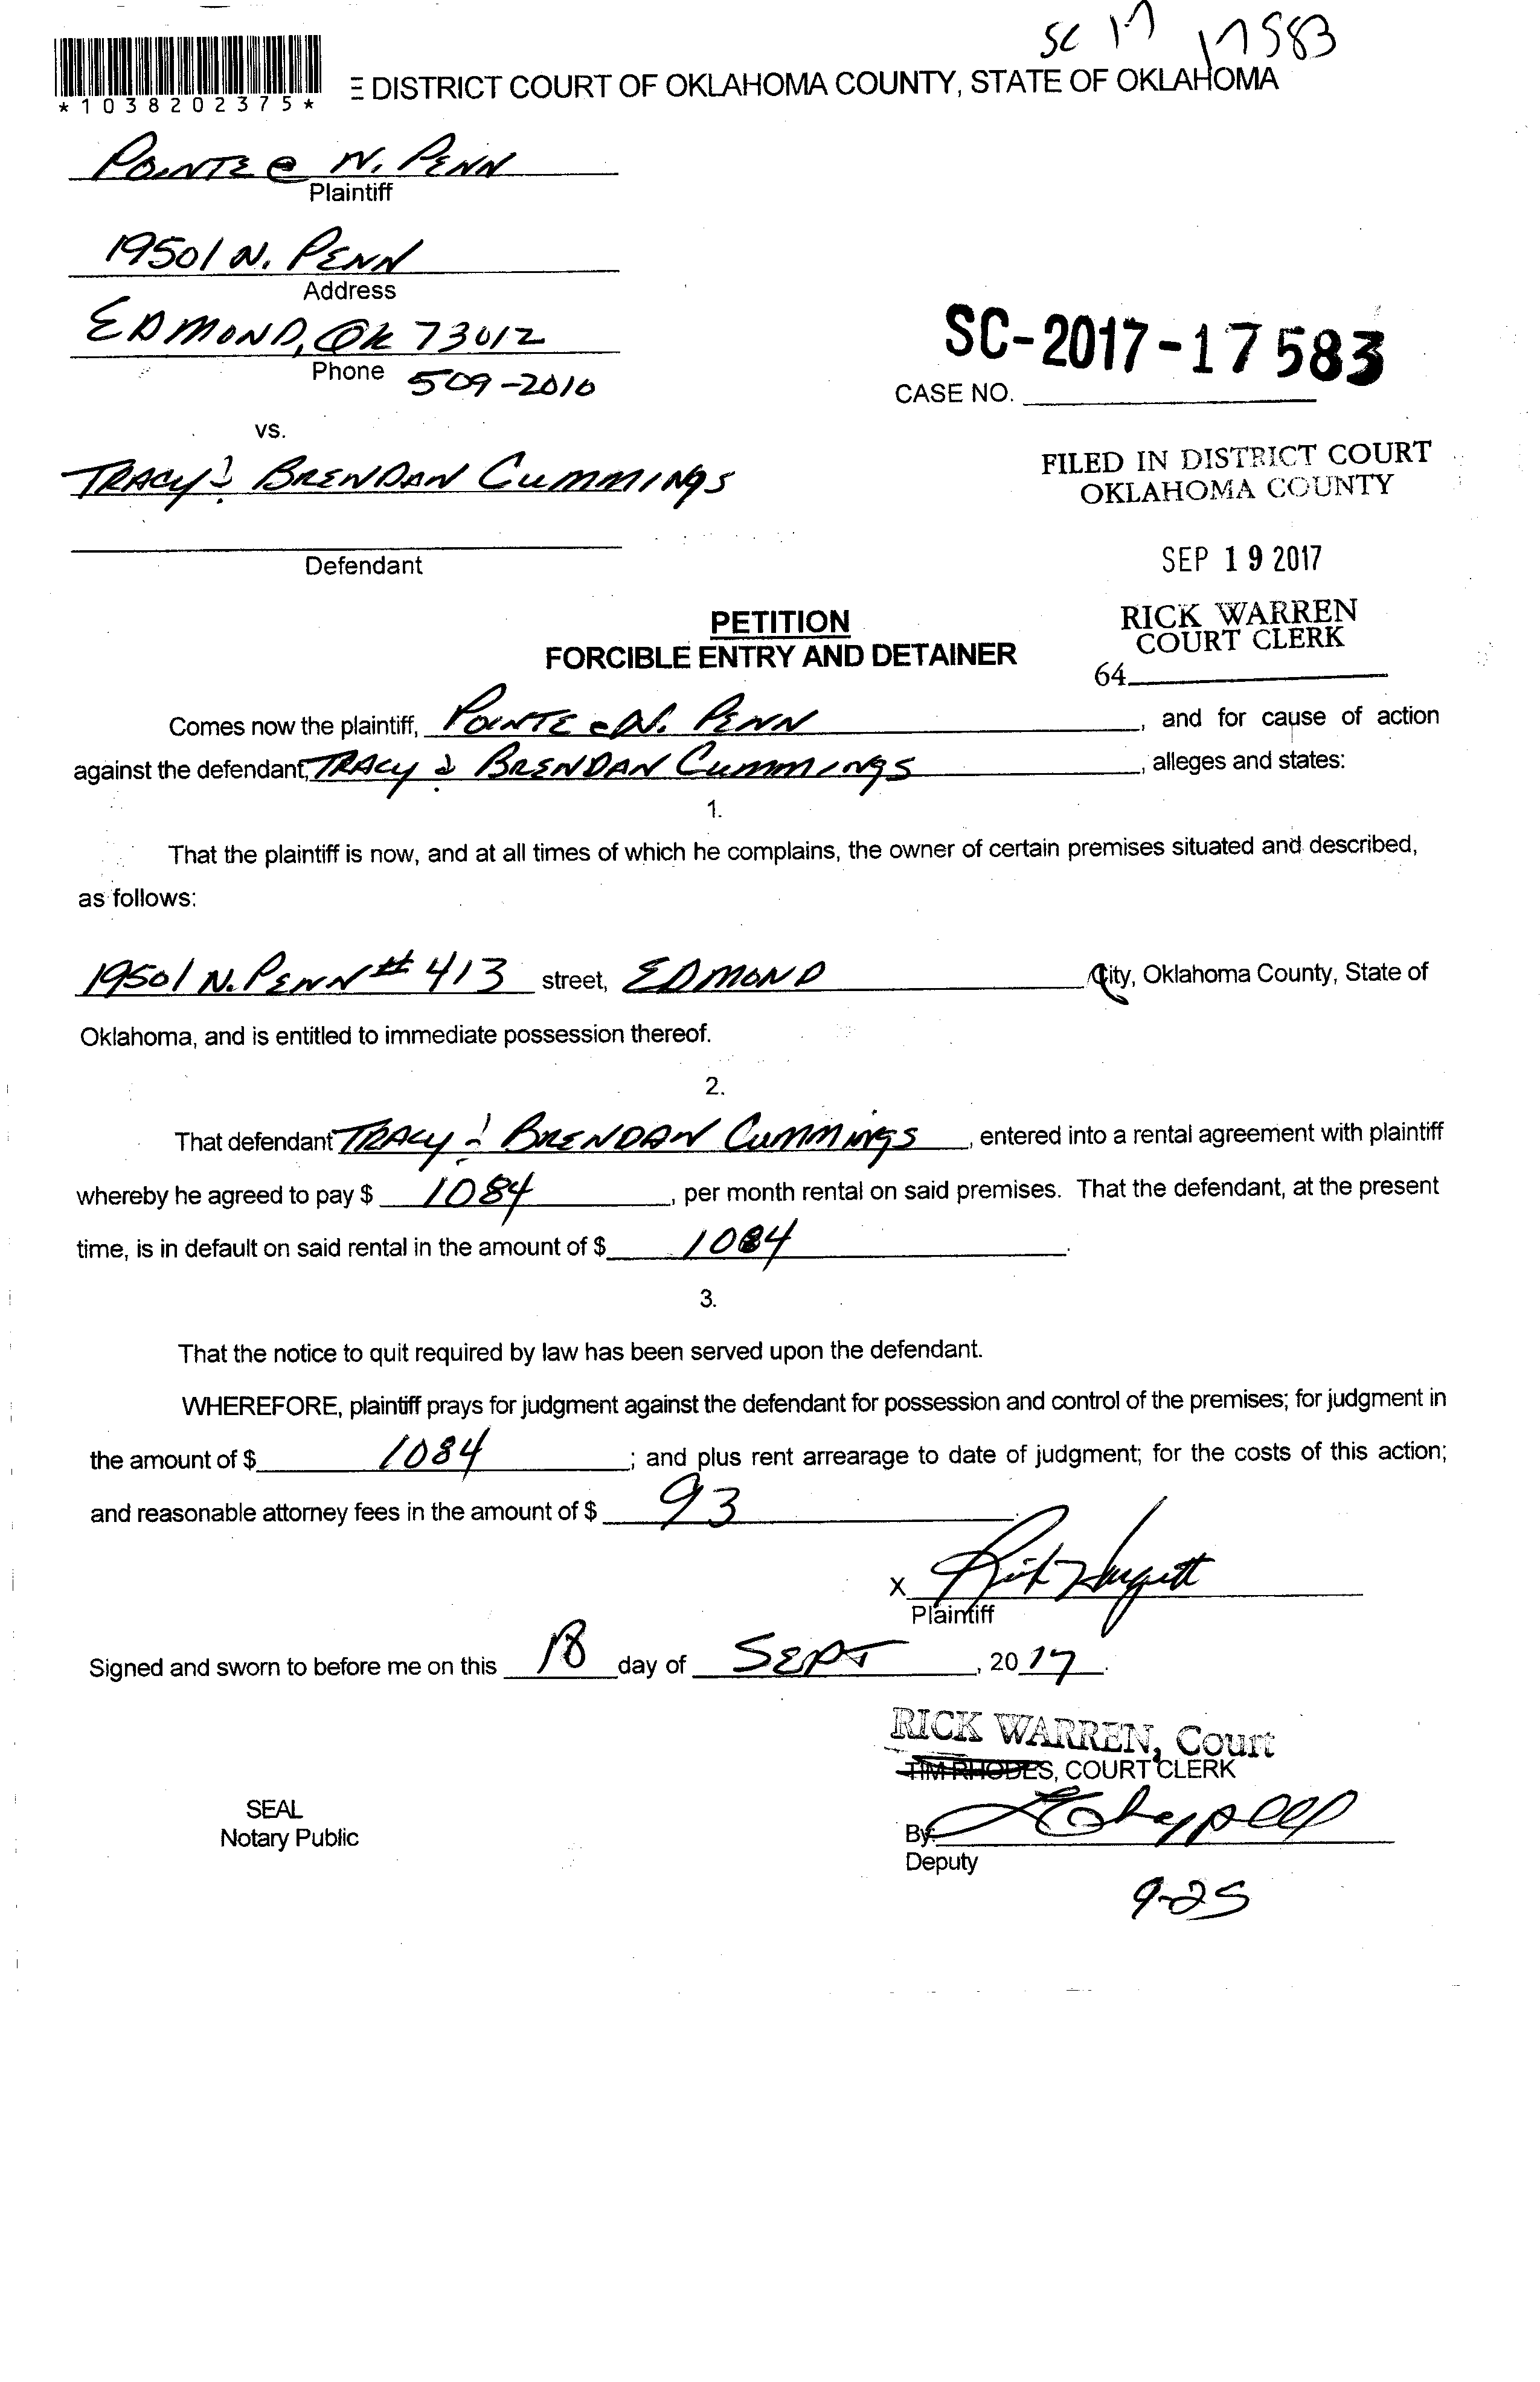 SC 17 17583
*1038202375*
E DISTRICT COURT OF OKLAHOMA COUNTY, STATE OF OKLAHOMA
POINTE @ N. PENN
Plaintiff
19501 N. PENN
Address
EDMOND, OK 73012
Phone 509-2010
SC-2017-17583
CASE NO.
vs.
TRACY & BRENDAN CUMMINGS
Defendant
FILED IN DISTRICT COURT
OKLAHOMA COUNTY
SEP 19 2017
RICK WARREN
COURT CLERK
64
PETITION
FORCIBLE ENTRY AND DETAINER
Comes now the plaintiff, POINTE @ N. PENN, and for cause of action
against the defendant, TRACY & BRENDAN CUMMINGS, alleges and states:
1.
That the plaintiff is now, and at all times of which he complains, the owner of certain premises situated and described,
as follows:
19501 N. PENN # 413 street, EDMOND City, Oklahoma County, State of
Oklahoma, and is entitled to immediate possession thereof.
2.
That defendant TRACY & BRENDAN CUMMINGS, entered into a rental agreement with plaintiff
whereby he agreed to pay $ 1084, per month rental on said premises. That the defendant, at the present
time, is in default on said rental in the amount of $ 1084.
3.
That the notice to quit required by law has been served upon the defendant.
WHEREFORE, plaintiff prays for judgment against the defendant for possession and control of the premises; for judgment in
the amount of $ 1084; and plus rent arrearage to date of judgment; for the costs of this action;
and reasonable attorney fees in the amount of $ 93.
X
Plaintiff
Signed and sworn to before me on this 18 day of SEPT, 2017.
RICK WARREN, Court
TIM RHODES, COURT CLERK
SEAL
Notary Public
By:
Deputy
9-25